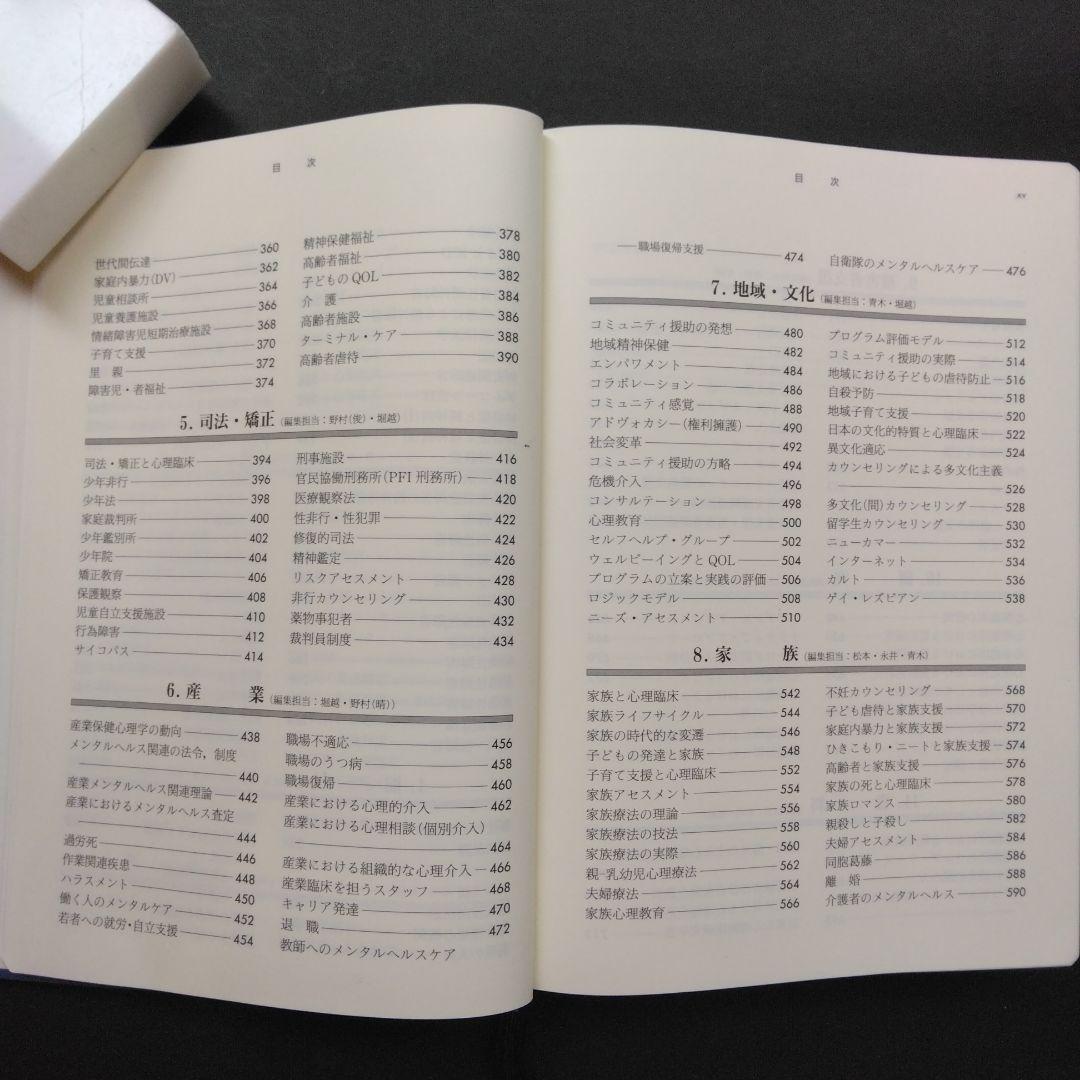 目 次
世代間伝達 360
家庭内暴力(DV) 362
児童相談所 364
児童養護施設 366
情緒障害児短期治療施設 368
子育て支援 370
里 親 372
障害児・者福祉 374
精神保健福祉 378
高齢者福祉 380
子どものQOL 382
介 護 384
高齢者施設 386
ターミナル・ケア 388
高齢者虐待 390
5. 司法・矯正(編集担当:野村(俊)・堀越)
司法・矯正と心理臨床 394
少年非行 396
少年法 398
家庭裁判所 400
少年鑑別所 402
少年院 404
矯正教育 406
保護観察 408
児童自立支援施設 410
行為障害 412
サイコパス 414
刑事施設 416
官民協働刑務所(PFI 刑務所) 418
医療観察法 420
性非行・性犯罪 422
修復的司法 424
精神鑑定 426
リスクアセスメント 428
非行カウンセリング 430
薬物事犯者 432
裁判員制度 434
6. 産 業(編集担当:堀越・野村(晴))
産業保健心理学の動向 438
メンタルヘルス関連の法令,制度
440
産業メンタルヘルス関連理論 442
産業におけるメンタルヘルス査定
444
過労死 446
作業関連疾患 448
ハラスメント 450
働く人のメンタルケア 452
若者への就労・自立支援 454
職場不適応 456
職場のうつ病 458
職場復帰 460
産業における心理的介入 462
産業における心理相談(個別介入)
464
産業における組織的な心理介入 466
産業臨床を担うスタッフ 468
キャリア発達 470
退 職 472
教師へのメンタルヘルスケア
目 次
xv
―職場復帰支援 474
自衛隊のメンタルヘルスケア 476
7. 地域・文化(編集担当:青木・堀越)
コミュニティ援助の発想 480
地域精神保健 482
エンパワメント 484
コラボレーション 486
コミュニティ感覚 488
アドヴォカシー(権利擁護) 490
社会変革 492
コミュニティ援助の方略 494
危機介入 496
コンサルテーション 498
心理教育 500
セルフヘルプ・グループ 502
ウェルビーイングとQOL 504
プログラムの立案と実践の評価 506
ロジックモデル 508
ニーズ・アセスメント 510
プログラム評価モデル 512
コミュニティ援助の実際 514
地域における子どもの虐待防止 516
自殺予防 518
地域子育て支援 520
日本の文化的特質と心理臨床 522
異文化適応 524
カウンセリングによる多文化主義
526
多文化(間)カウンセリング 528
留学生カウンセリング 530
ニューカマー 532
インターネット 534
カルト 536
ゲイ・レズビアン 538
8. 家 族(編集担当:松本・永井・青木)
家族と心理臨床 542
家族ライフサイクル 544
家族の時代的な変遷 546
子どもの発達と家族 548
子育て支援と心理臨床 552
家族アセスメント 554
家族療法の理論 556
家族療法の技法 558
家族療法の実際 560
親-乳幼児心理療法 562
夫婦療法 564
家族心理教育 566
不妊カウンセリング 568
子ども虐待と家族支援 570
家庭内暴力と家族支援 572
ひきこもり・ニートと家族支援 574
高齢者と家族支援 576
家族の死と心理臨床 578
家族ロマンス 580
親殺しと子殺し 582
夫婦アセスメント 584
同胞葛藤 586
離 婚 588
介護者のメンタルヘルス 590